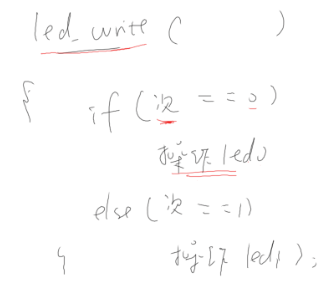 led_write ( )
{ if (次 == 0)
操作 led0
else (次 == 1)
} 操作 led1 );